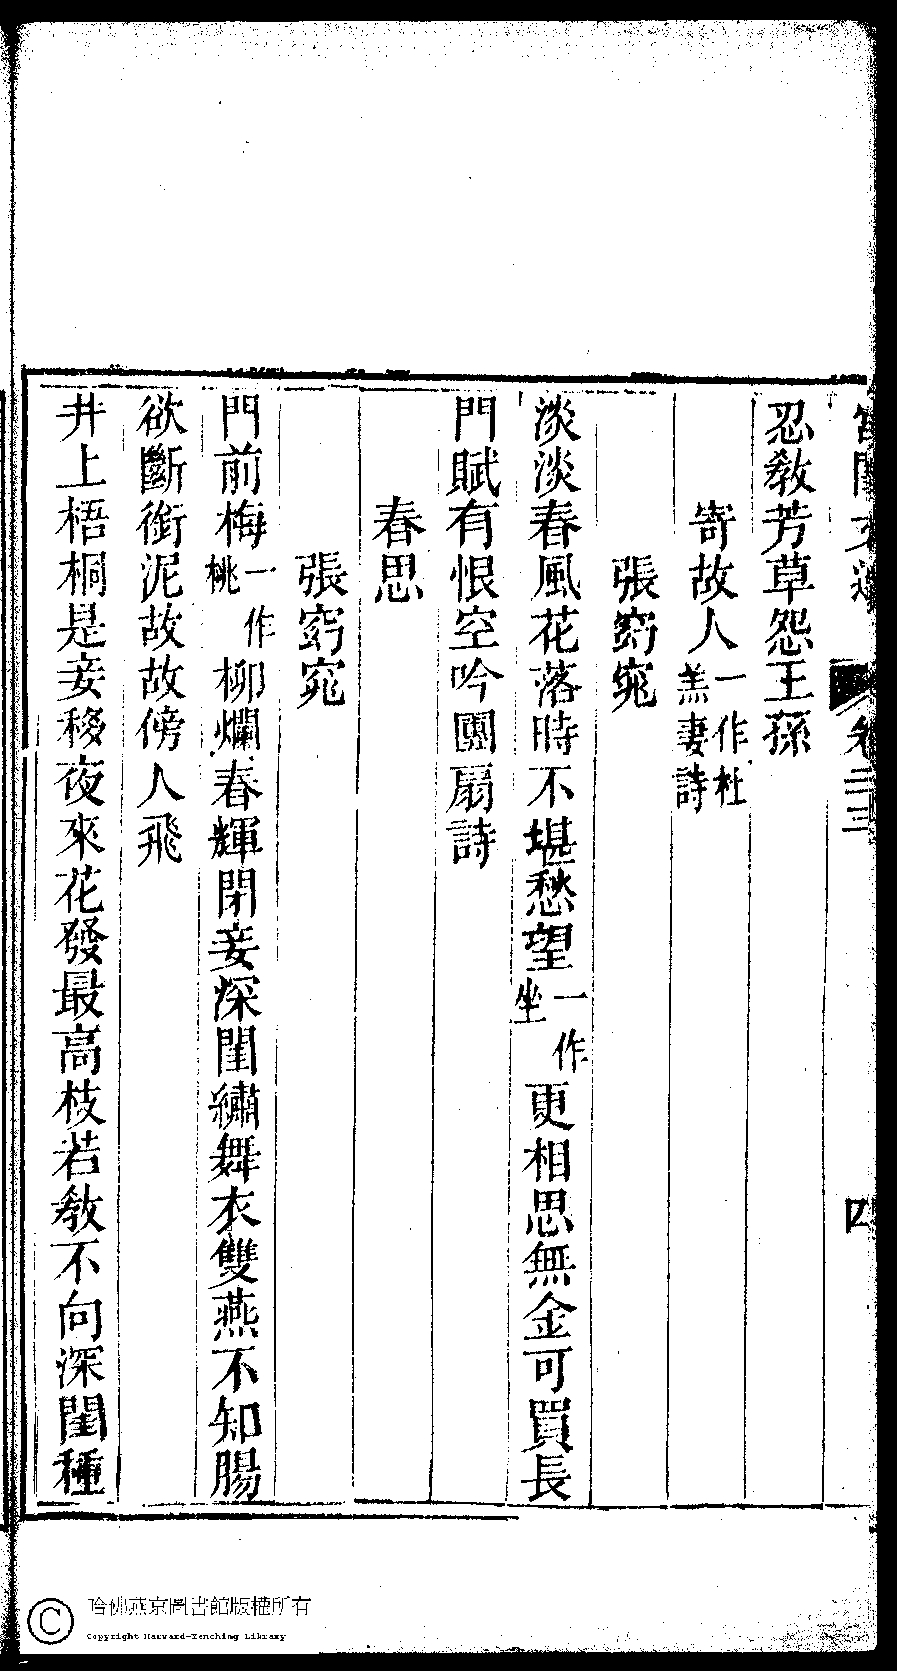 宮閨文選 卷 四
忍敎芳草怨王孫
寄故人一作杜羔妻詩
張窈窕
淡淡春風花落時不堪愁望一作坐更相思無金可買長
門賦有恨空吟團扇詩
春思
張窈窕
門前梅一作桃柳爛春輝閉妾深閨繡舞衣雙燕不知腸
欲斷銜泥故故傍人飛
井上梧桐是妾移夜來花發最高枝若敎不向深閨種
© 哈佛燕京圖書館版權所有
Copyright Harvard-Yenching Library